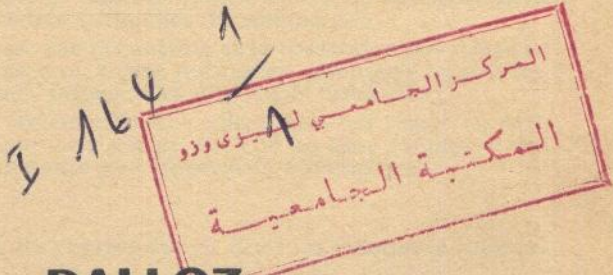 المركز الجامعي لتيزي وزو
المكتبة الجامعية
DALLOZ